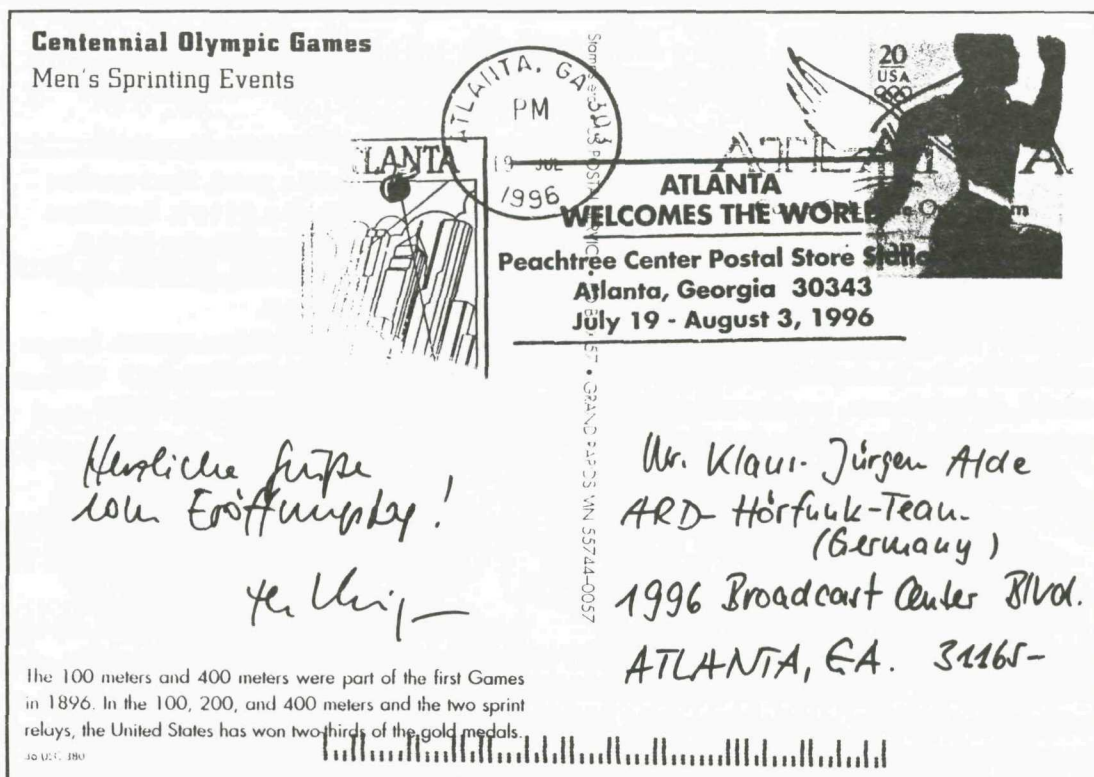 Centennial Olympic Games
Men's Sprinting Events
ATLANTA, GA 303
PM
19 JUL
1996
LANTA
20
USA
ATLANTA
ATLANTA
WELCOMES THE WORLD
Peachtree Center Postal Store
Atlanta, Georgia 30343
July 19 - August 3, 1996
GRAND RAPIDS MN 55744-0057
Herzliche Grüße
vom Eröffnungstag!
Mr. Klaus-Jürgen Alde
ARD-Hörfunk-Team
(Germany)
1996 Broadcast Center Blvd.
ATLANTA, GA. 31165-
The 100 meters and 400 meters were part of the first Games
in 1896. In the 100, 200, and 400 meters and the two sprint
relays, the United States has won two-thirds of the gold medals.